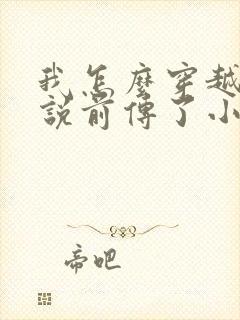 我怎麼穿越
說前傳了小
帝吧